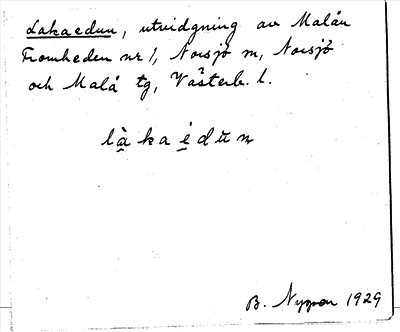 Lakaedun, utvidgning av Malån
Fromheden nr 1, Norsjö sn, Norsjö
och Malå tg, Västerb. l.
làkaèdŭn
B. Nygren 1929